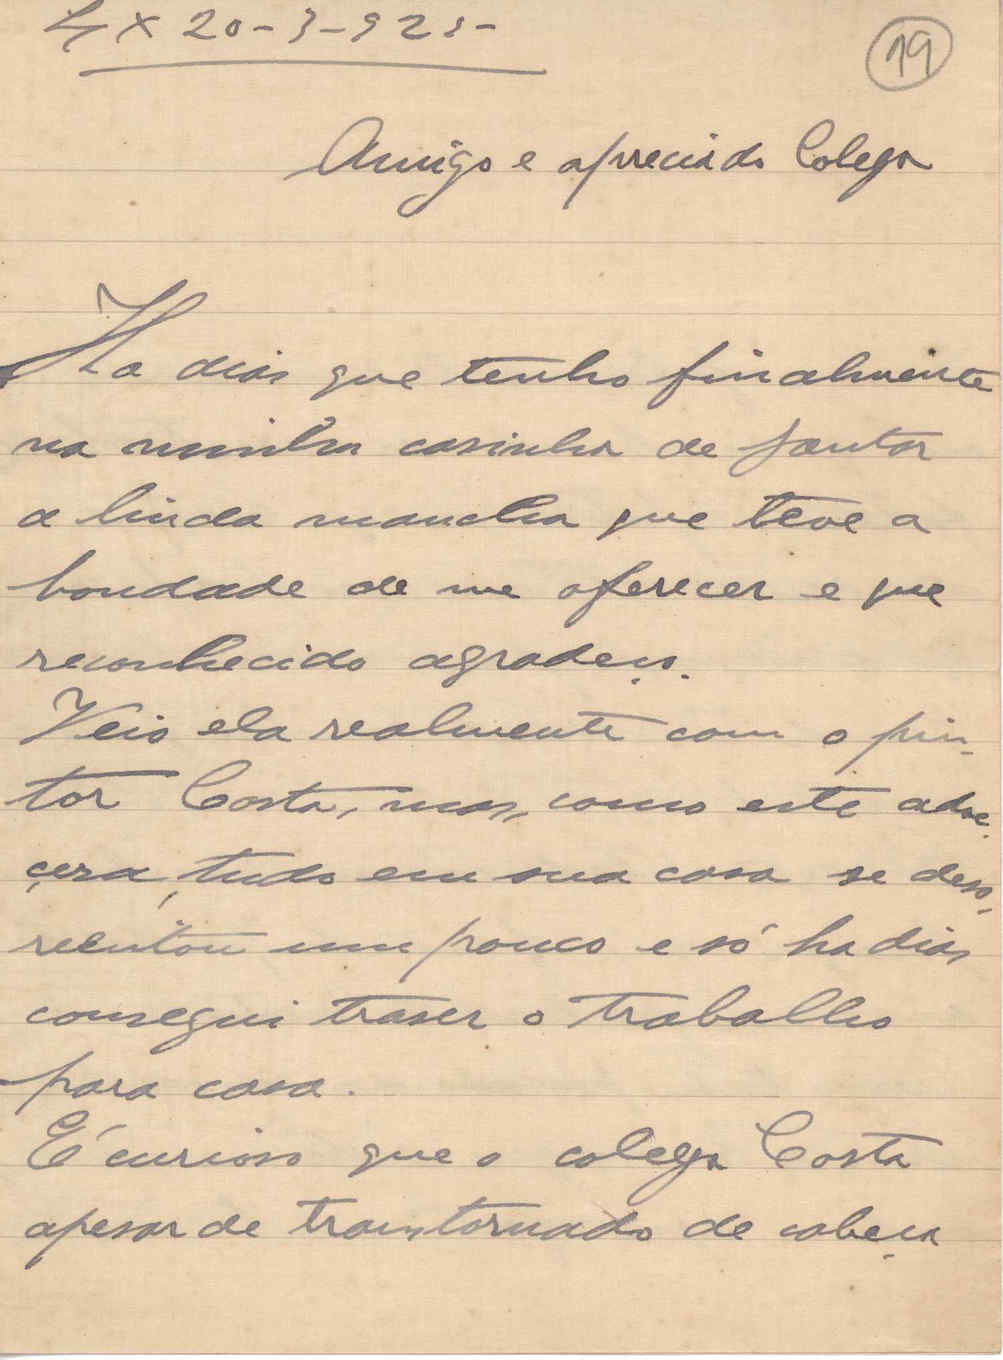 Lx 20-3-923-
19
Amigo e apreciado Colega
Ha dias que tenho finalmente
na minha casinha de jantar
a linda mancha que teve a
bondade de me oferecer e que
reconhecido agradeço.
Veio ela realmente com o pin-
tor Costa, mas, como este adoe-
cera, tudo em sua casa se deso-
rientou um pouco e só ha dias
consegui traser o trabalho
para casa.
É curioso que o colega Costa
apesar de transtornado de cabeça